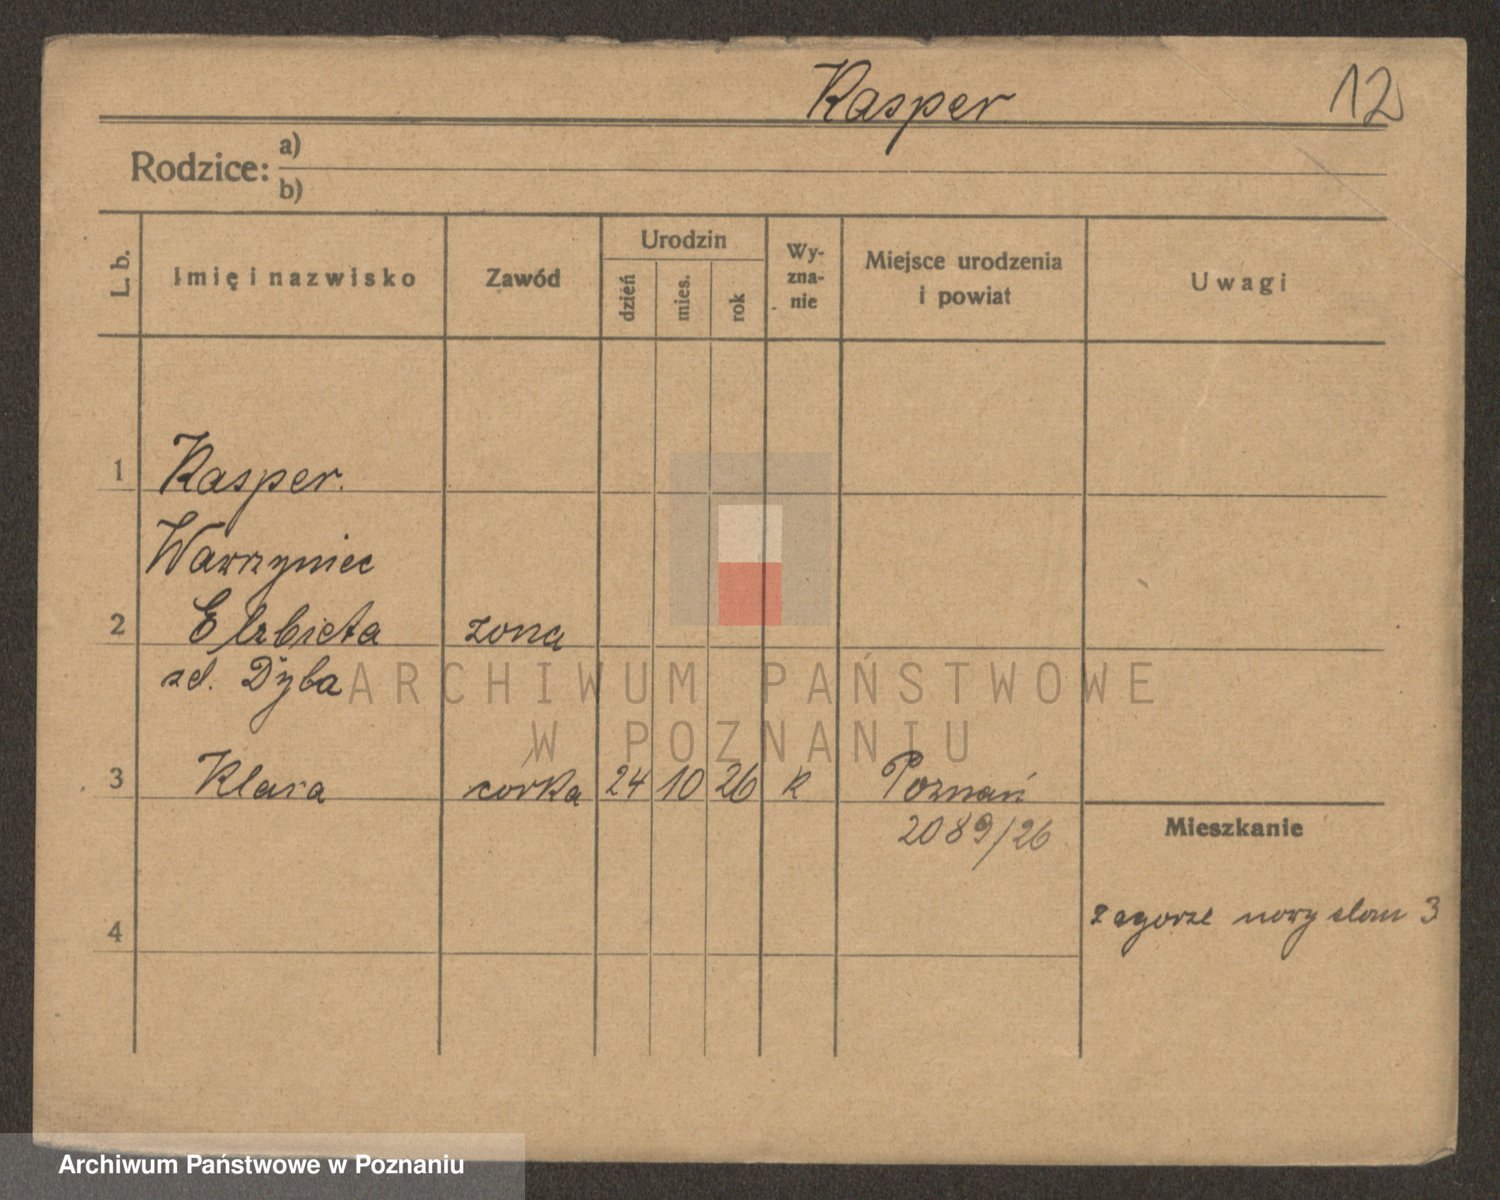 Kasper 12
Rodzice: a)
b)
L. b. Imię i nazwisko Zawód Urodzin dzień mies. rok Wy-zna-nie Miejsce urodzenia i powiat Uwagi
1 Kasper.
Wawrzyniec
2 Elzbieta zona
zd. Dyba
ARCHIWUM PAŃSTWOWE
W POZNANIU
3 Klara córka 24 10 26 k Poznań
2089/26
Mieszkanie
4
Zagorze nowy dom 3
Archiwum Państwowe w Poznaniu